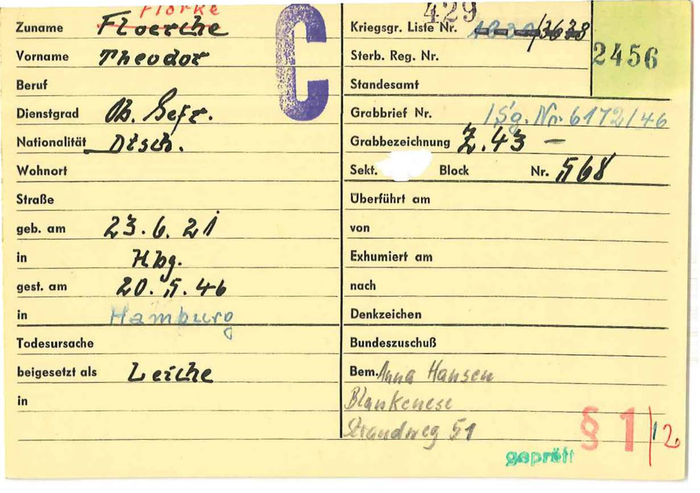 Florke
Zuname Floerche
Vorname Theodor
Beruf
Dienstgrad Ob. Gefr.
Nationalität Dtsch.
Wohnort
Straße
geb. am 23.6.21
in Hbg.
gest. am 20.5.46
in Hamburg
Todesursache
beigesetzt als Leiche
in
C
429
Kriegsgr. Liste Nr. /3638
2456
Sterb. Reg. Nr.
Standesamt
Grabbrief Nr. /Sg. Nr. 6172/46
Grabbezeichnung Z.43 –
Sekt. Block Nr. 568
Überführt am
von
Exhumiert am
nach
Denkzeichen
Bundeszuschuß
Bem. Anna Hansen
Blankenese
Strandweg 51
geprüft
§ 1/12